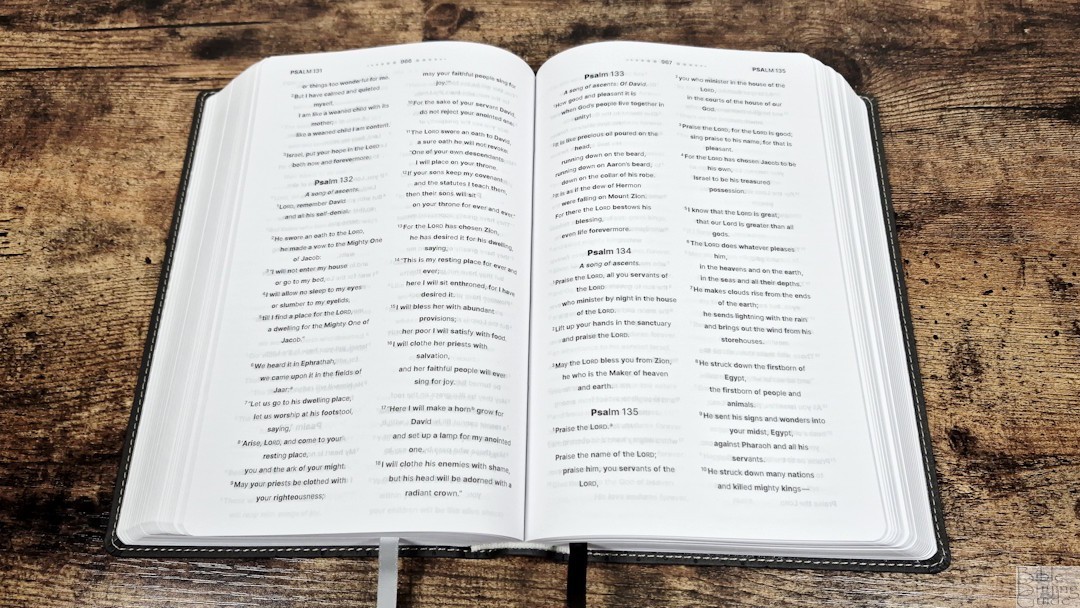 PSALM 131
966
or things too wonderful for me.
2 But I have calmed and quieted
myself,
I am like a weaned child with its
mother;
like a weaned child I am content.
3 Israel, put your hope in the LORD
both now and forevermore.
Psalm 132
A song of ascents.
1 LORD, remember David
and all his self-denial.
2 He swore an oath to the LORD,
he made a vow to the Mighty One
of Jacob:
3 "I will not enter my house
or go to my bed,
4 I will allow no sleep to my eyes
or slumber to my eyelids,
5 till I find a place for the LORD,
a dwelling for the Mighty One of
Jacob."
6 We heard it in Ephrathah,
we came upon it in the fields of
Jaar:
7 "Let us go to his dwelling place,
let us worship at his footstool,
saying,
8 'Arise, LORD, and come to your
resting place,
you and the ark of your might.
9 May your priests be clothed with
your righteousness;
may your faithful people sing for
joy.'"
10 For the sake of your servant David,
do not reject your anointed one.
11 The LORD swore an oath to David,
a sure oath he will not revoke:
"One of your own descendants
I will place on your throne.
12 If your sons keep my covenant
and the statutes I teach them,
then their sons will sit
on your throne for ever and ever."
13 For the LORD has chosen Zion,
he has desired it for his dwelling,
saying,
14 "This is my resting place for ever and
ever;
here I will sit enthroned, for I have
desired it.
15 I will bless her with abundant
provisions;
her poor I will satisfy with food.
16 I will clothe her priests with
salvation,
and her faithful people will ever
sing for joy.
17 "Here I will make a horn grow for
David
and set up a lamp for my anointed
one.
18 I will clothe his enemies with shame,
but his head will be adorned with a
radiant crown."
967
PSALM 135
Psalm 133
A song of ascents. Of David.
1 How good and pleasant it is
when God's people live together in
unity!
2 It is like precious oil poured on the
head,
running down on the beard,
running down on Aaron's beard,
down on the collar of his robe.
3 It is as if the dew of Hermon
were falling on Mount Zion.
For there the LORD bestows his
blessing,
even life forevermore.
Psalm 134
A song of ascents.
1 Praise the LORD, all you servants of
the LORD
who minister by night in the house
of the LORD.
2 Lift up your hands in the sanctuary
and praise the LORD.
3 May the LORD bless you from Zion,
he who is the Maker of heaven
and earth.
Psalm 135
1 Praise the LORD.
Praise the name of the LORD;
praise him, you servants of the
LORD,
2 you who minister in the house of the
LORD,
in the courts of the house of our
God.
3 Praise the LORD, for the LORD is good;
sing praise to his name, for that is
pleasant.
4 For the LORD has chosen Jacob to be
his own,
Israel to be his treasured
possession.
5 I know that the LORD is great,
that our Lord is greater than all
gods.
6 The LORD does whatever pleases
him,
in the heavens and on the earth,
in the seas and all their depths.
7 He makes clouds rise from the ends
of the earth;
he sends lightning with the rain
and brings out the wind from his
storehouses.
8 He struck down the firstborn of
Egypt,
the firstborn of people and
animals.
9 He sent his signs and wonders into
your midst, Egypt,
against Pharaoh and all his
servants.
10 He struck down many nations
and killed mighty kings—
Bible
Buying
Guide